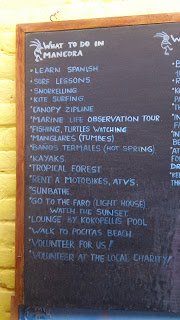 WHAT TO DO IN
MANCORA
• LEARN SPANISH
• SURF LESSONS
• SNORKELLING
• KITE SURFING
• CANOPY ZIPLINE
• MARINE LIFE OBSERVATION TOUR
• FISHING, TURTLES WITCHINE
• MANGLARES (TUMBES)
• BAÑOS TERMALES (HOT SPRING)
• KAYAKS
• TROPICAL FOREST
• RENT A MOTOBIKES, ATVS,
• SUNBATHE
• GO TO THE FARO (LIGHT HOUSE)
WATCH THE SUNSET
• LOUNGE BY KOKOPELLIS POOL
• WALK TO POCITAS BEACH
• VOLUNTEER FOR US!
• VOLUNTEER AT THE LOCAL CHARITY!